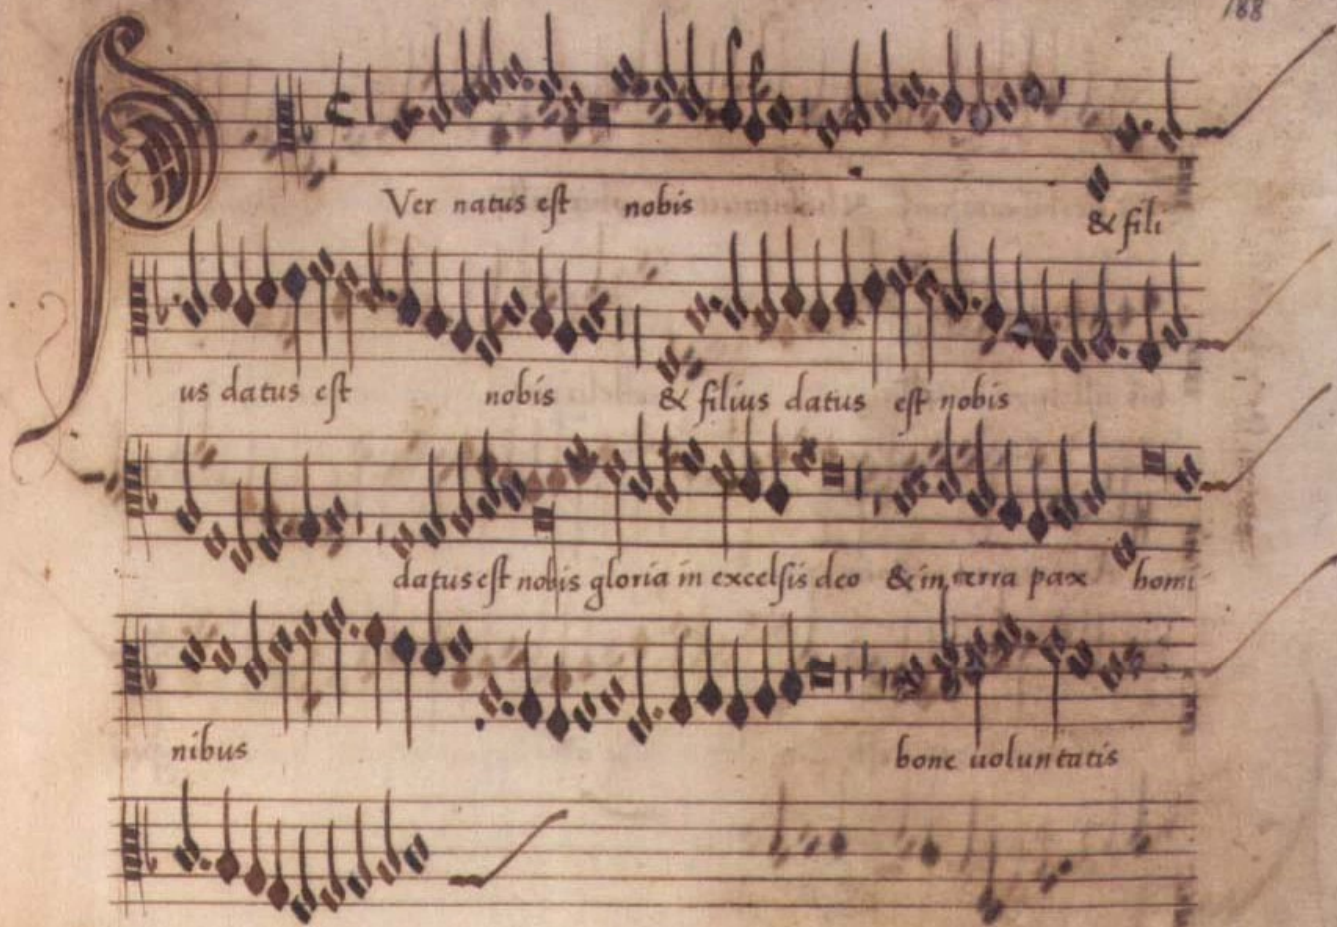 188
PVer natus est nobis & fili
us datus est nobis & filius datus est nobis
datus est nobis gloria in excelsis deo & in terra pax homi
nibus bone uoluntatis